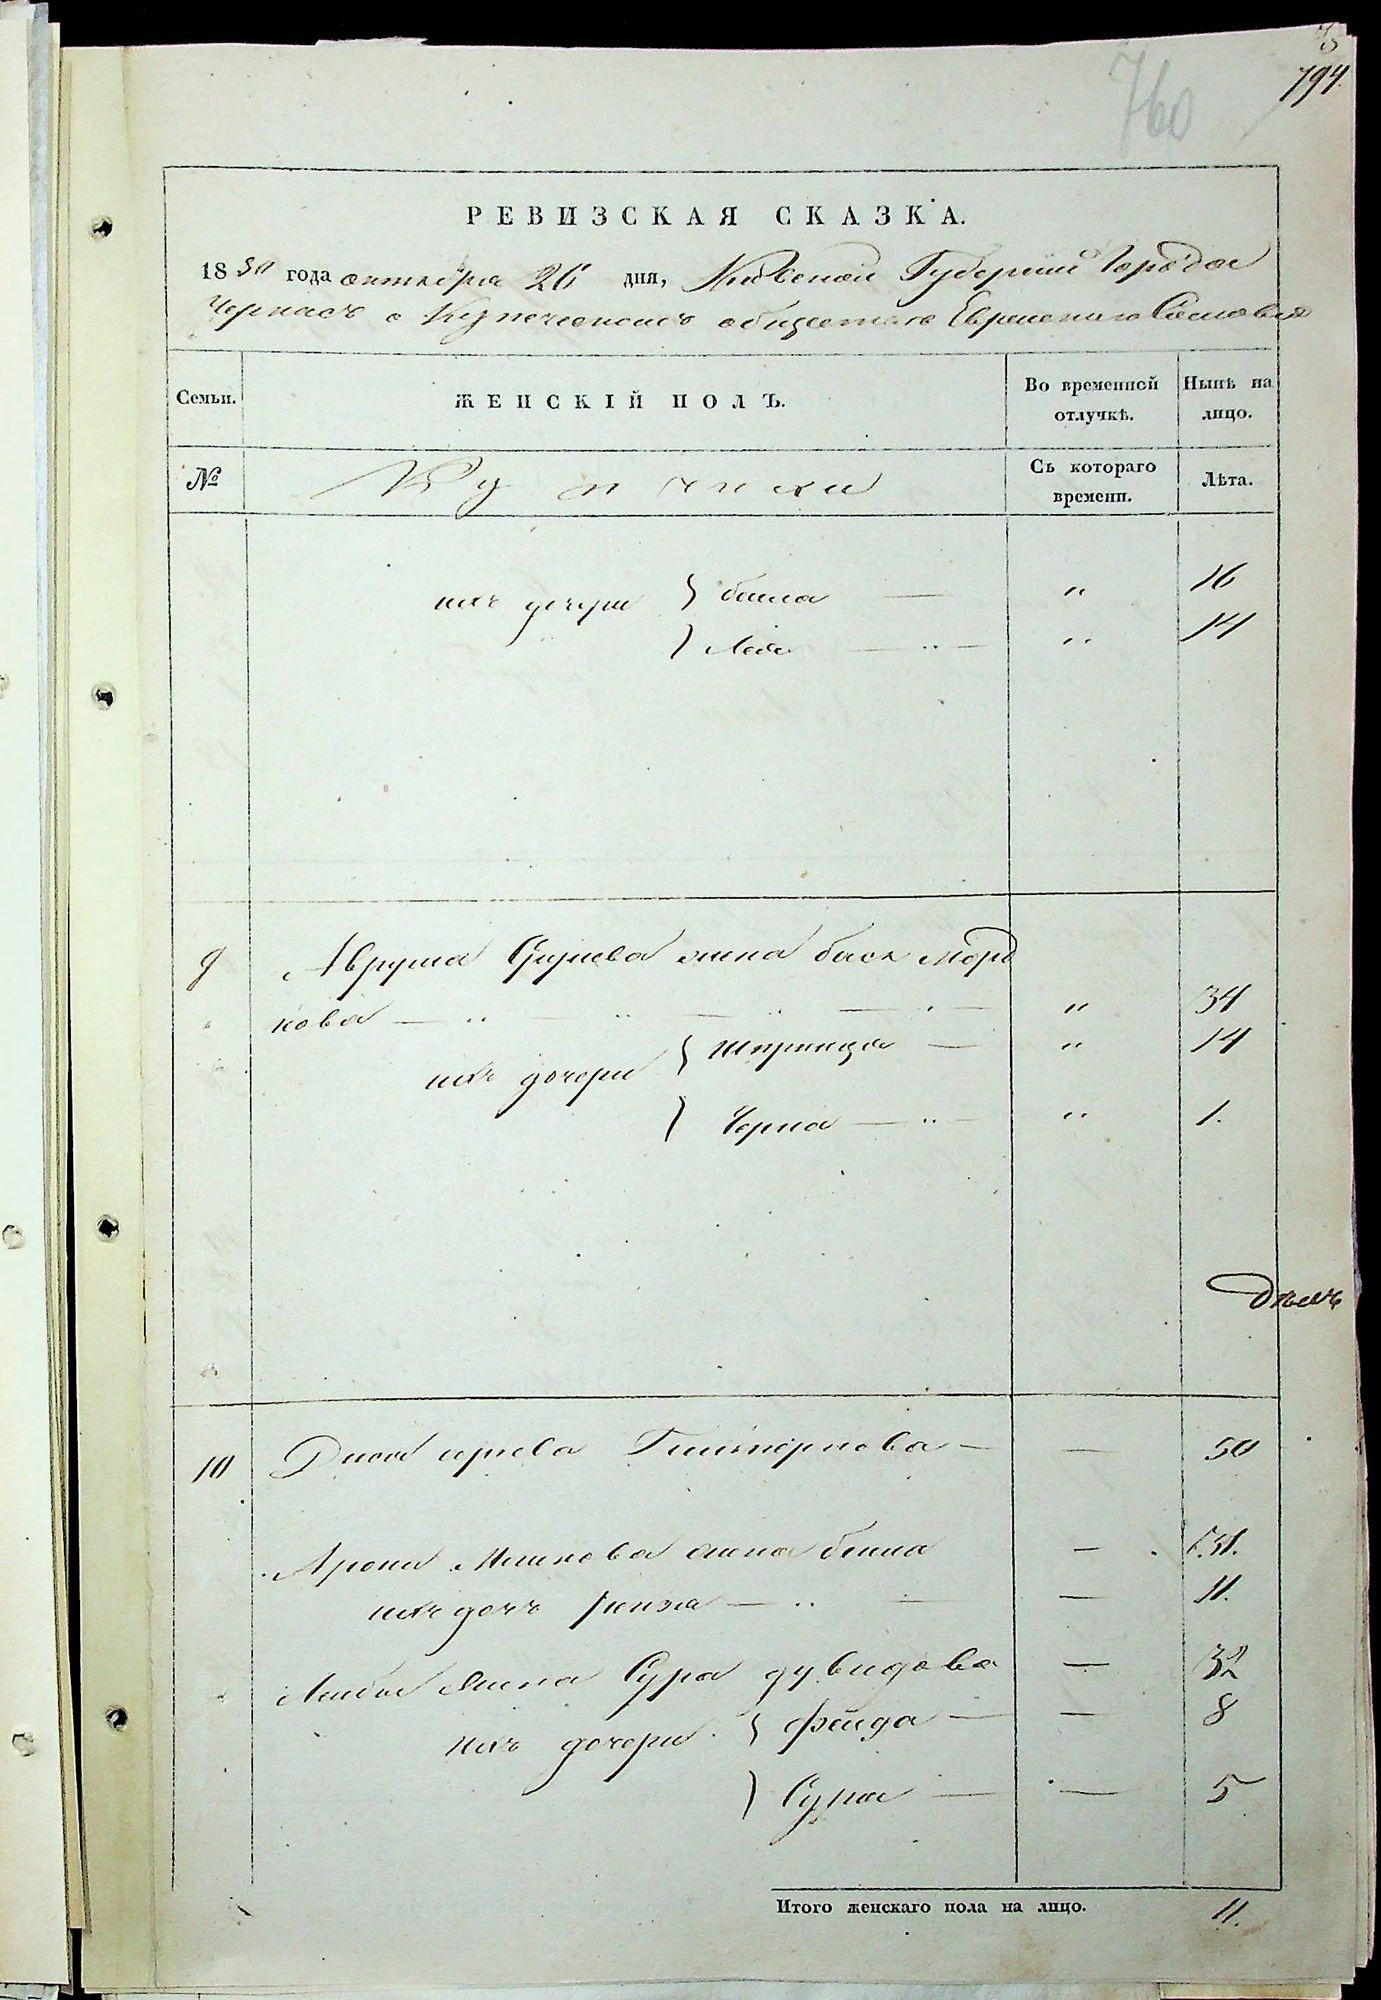 794
760
РЕВИЗСКАЯ СКАЗКА.
1850 года октября 26 дня, Кіевской Губерніи Города
Черкасъ о Купеческомъ обществе Еврейскаго Сословія
Семьи.
ЖЕНСКІЙ ПОЛЪ.
Во временной отлучкѣ.
Нынѣ на лицо.
№
Купчихи
Съ котораго времени.
Лѣта.
ихъ дочери } баша — " 16
} Лея — " — " 14
9 Аврума жена бася Морд
кова — " — " — " — " — " 34
ихъ дочери } Шпринца — " 14
} Черна — " — " 1.
10 — — 50
Арона Мошкова жена бейла — 31.
ихъ дочь — " — — 11.
Лейбы жена Сура дувидова — 32
ихъ дочери } фейда — — 8
} Сура — — 5
Итого женскаго пола на лицо. 11.